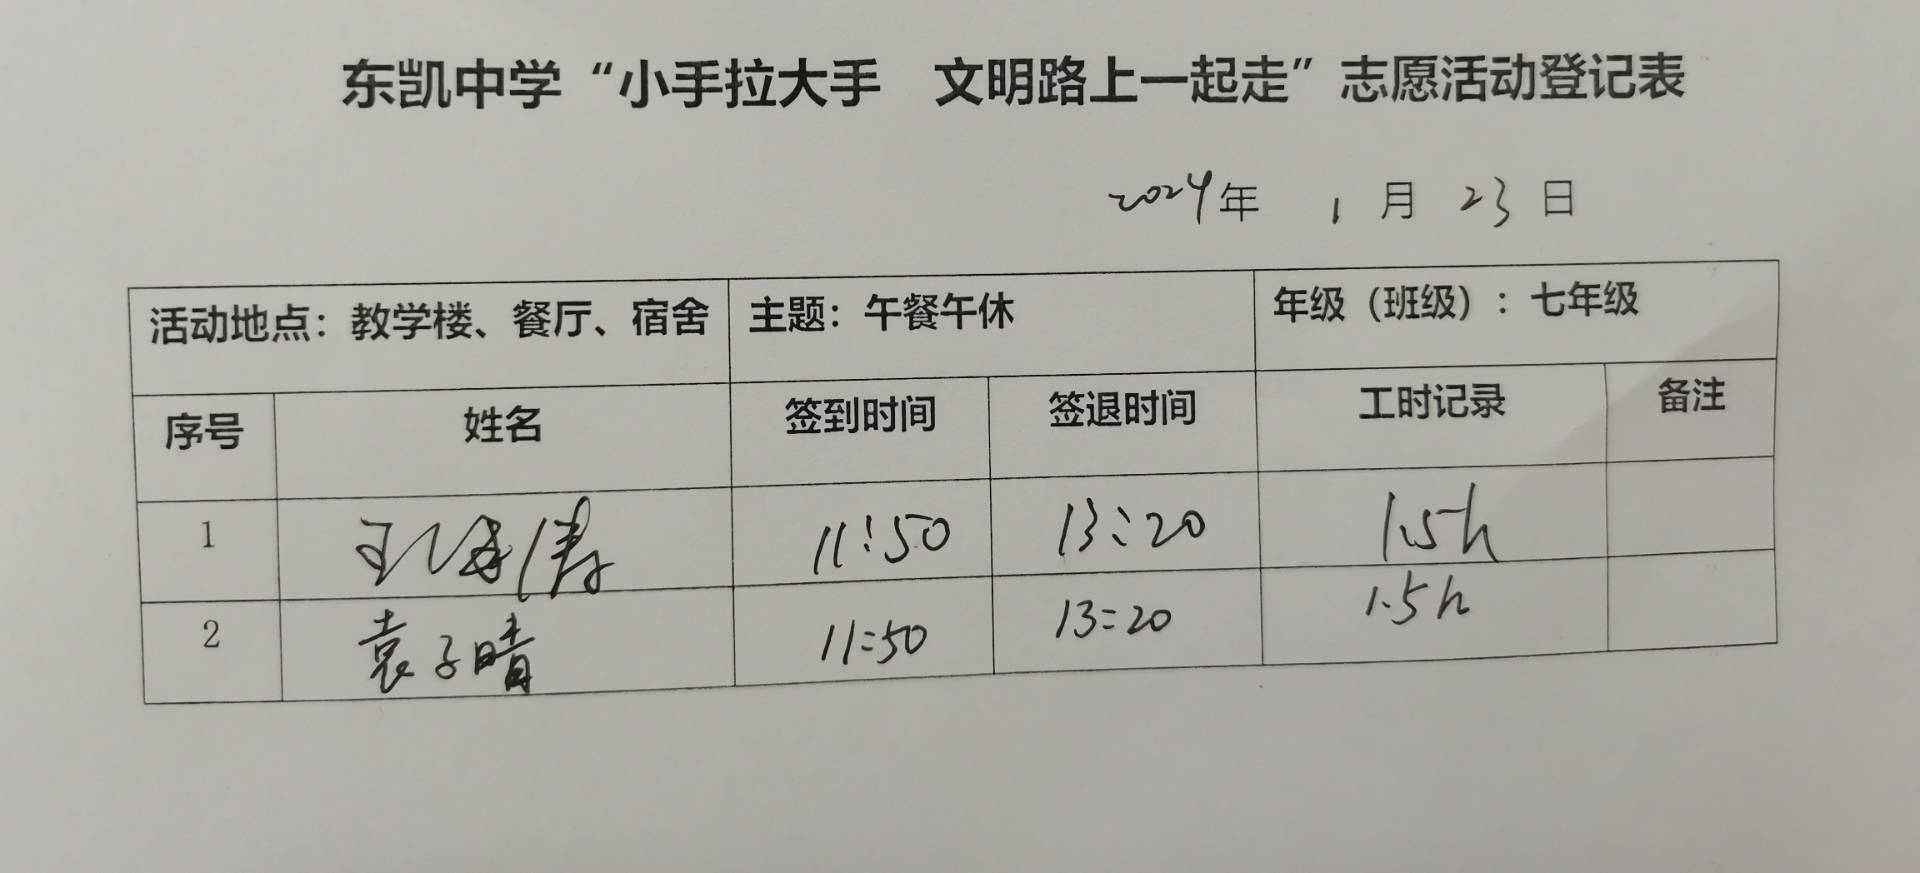 东凯中学“小手拉大手 文明路上一起走”志愿活动登记表
2024年 1月 23日
活动地点：教学楼、餐厅、宿舍 主题：午餐午休 年级（班级）：七年级
序号 姓名 签到时间 签退时间 工时记录 备注
1 王 涛 11:50 13:20 1.5h
2 袁子晴 11:50 13:20 1.5h